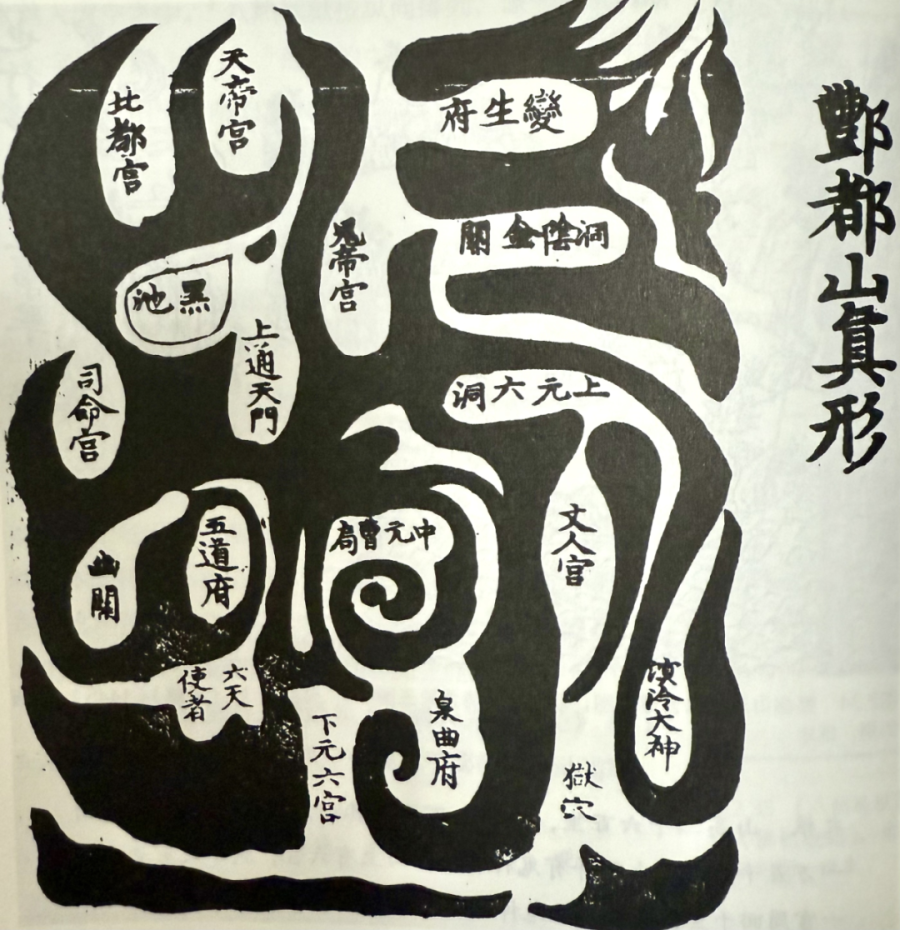 酆都山真形
變生府
洞陰金闕
上元六洞
丈人宮
溟泠大神
獄穴
天帝宮
北都宮
鬼帝宮
黑池
上通天門
司命宮
中元曹局
五道府
幽關
六天
使者
泉曲府
下元六宮